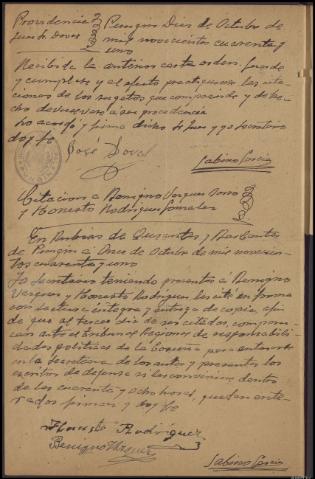 Providencia Pungin Diez de Octubre de
Juez Sr Dovai mil novecientos cuarenta y
uno
Recibida la anterior carta orden, guarde
y cumplase y al efecto practiquense las cita
ciones de los sugetos que comprende y de he
cho devuelvase a su procedencia
Lo acordó y firma dicho Sr Juez y yo Secretario
doy fe
José
Sabino García
Citacion a Benigno Vazquez
y Honesto Rodriguez Gonzalez
En Rubias de
de Pungin a Once de Octubre de mil novecien
tos cuarenta y uno
Yo Secretario teniendo presentes á Benigno
Vazquez y Honesto Rodriguez les cité en forma
con lectura integra y entrega de copia, afin
de que al tercer dia de ser citados, comparez
can ante el Tribunal Regional de responsabili
dades politicas de la Coruña para enterarse
en la Secretaria de los autos y presenten los
escritos de defensa si les conviniere dentro
de las cuarenta y ocho horas, quedan ente
rados firman y doy fe
Honesto Rodríguez
Benigno Vazquez
Sabino García